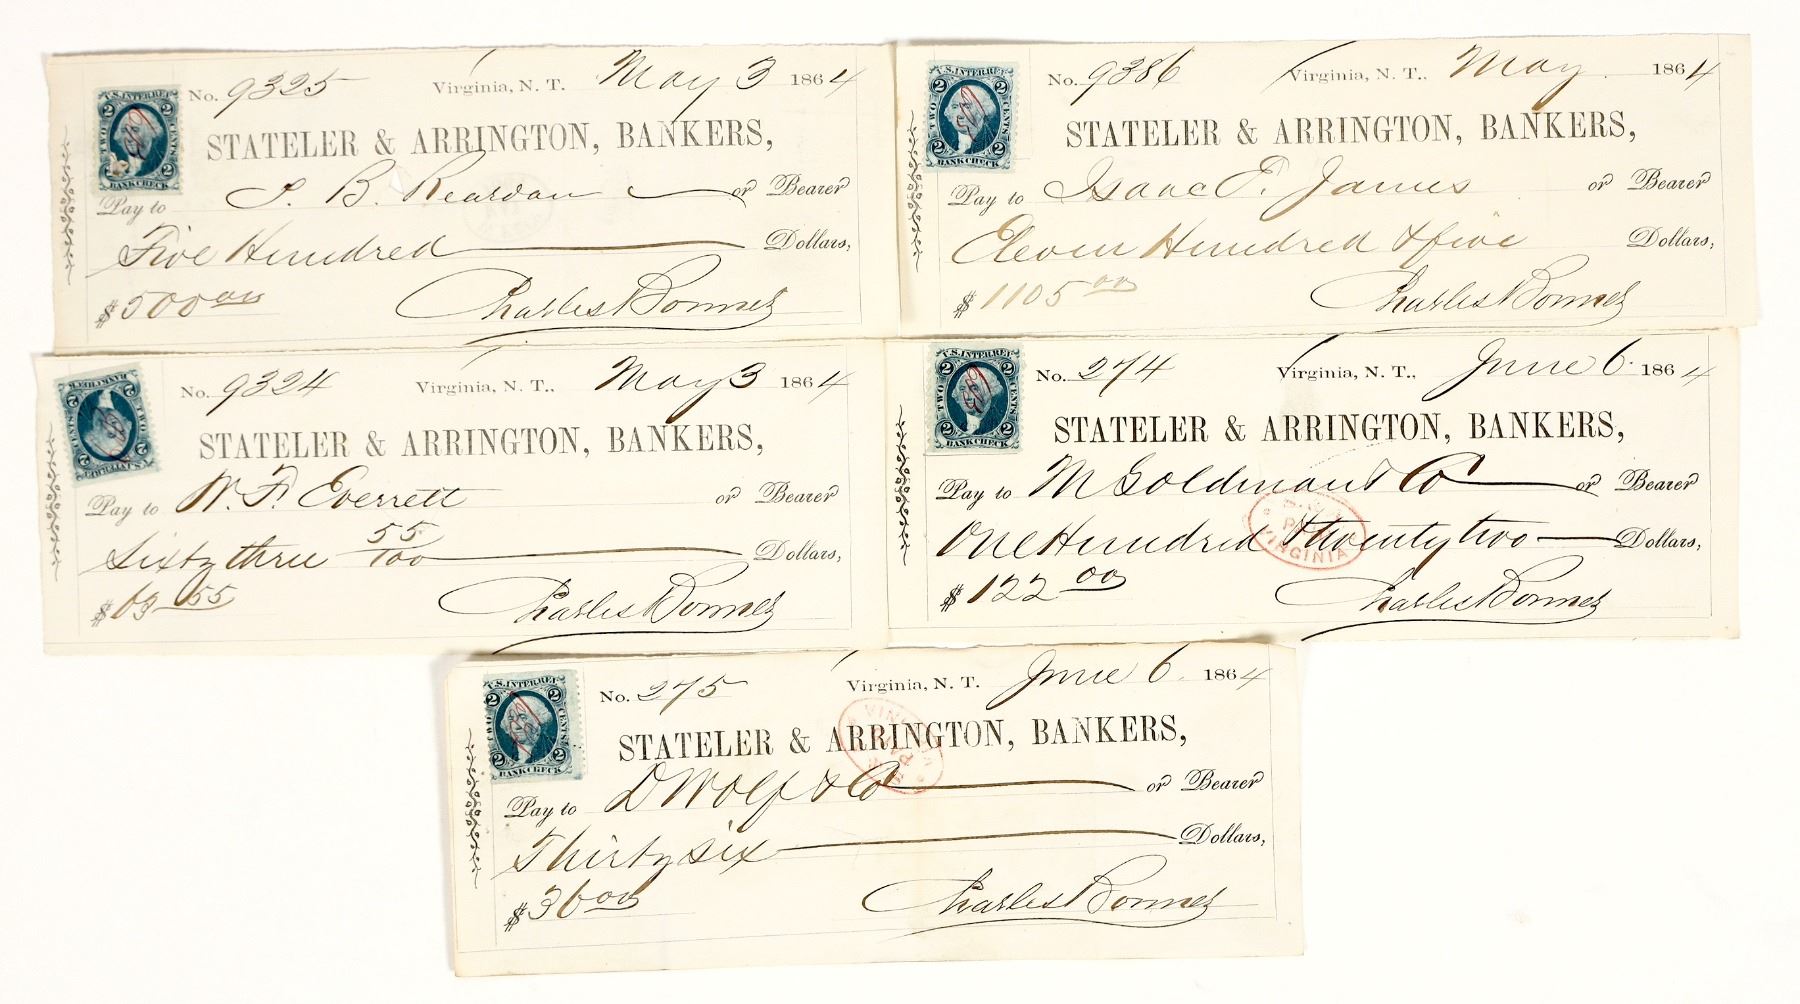 No. 9325 Virginia, N. T. May 3 1864
U.S. INTER. REV.
2 2
TWO CENTS
2 2
BANK CHECK
STATELER & ARRINGTON, BANKERS,
Pay to J. B. Reardan or Bearer
Five Hundred Dollars,
$500 00 Charles Bonner
No. 9386 Virginia, N. T., May 1864
U.S. INTER. REV.
2 2
TWO CENTS
2 2
BANK CHECK
STATELER & ARRINGTON, BANKERS,
Pay to Isaac E. James or Bearer
Eleven Hundred & five Dollars,
$1105 00 Charles Bonner
No. 9324 Virginia, N. T., May 3 1864
U.S. INTER. REV.
2 2
TWO CENTS
2 2
BANK CHECK
STATELER & ARRINGTON, BANKERS,
Pay to W. F. Everett or Bearer
Sixty three 55/100 Dollars,
$63 55 Charles Bonner
No. 274 Virginia, N. T., June 6 1864
U.S. INTER. REV.
2 2
TWO CENTS
2 2
BANK CHECK
STATELER & ARRINGTON, BANKERS,
Pay to M Goldman & Co or Bearer
One Hundred & twenty two Dollars,
VIRGINIA
$122 00 Charles Bonner
No. 275 Virginia, N. T. June 6 1864
U.S. INTER. REV.
2 2
TWO CENTS
2 2
BANK CHECK
STATELER & ARRINGTON, BANKERS,
Pay to D Wolf & Co or Bearer
Thirty six Dollars,
$36 00 Charles Bonner